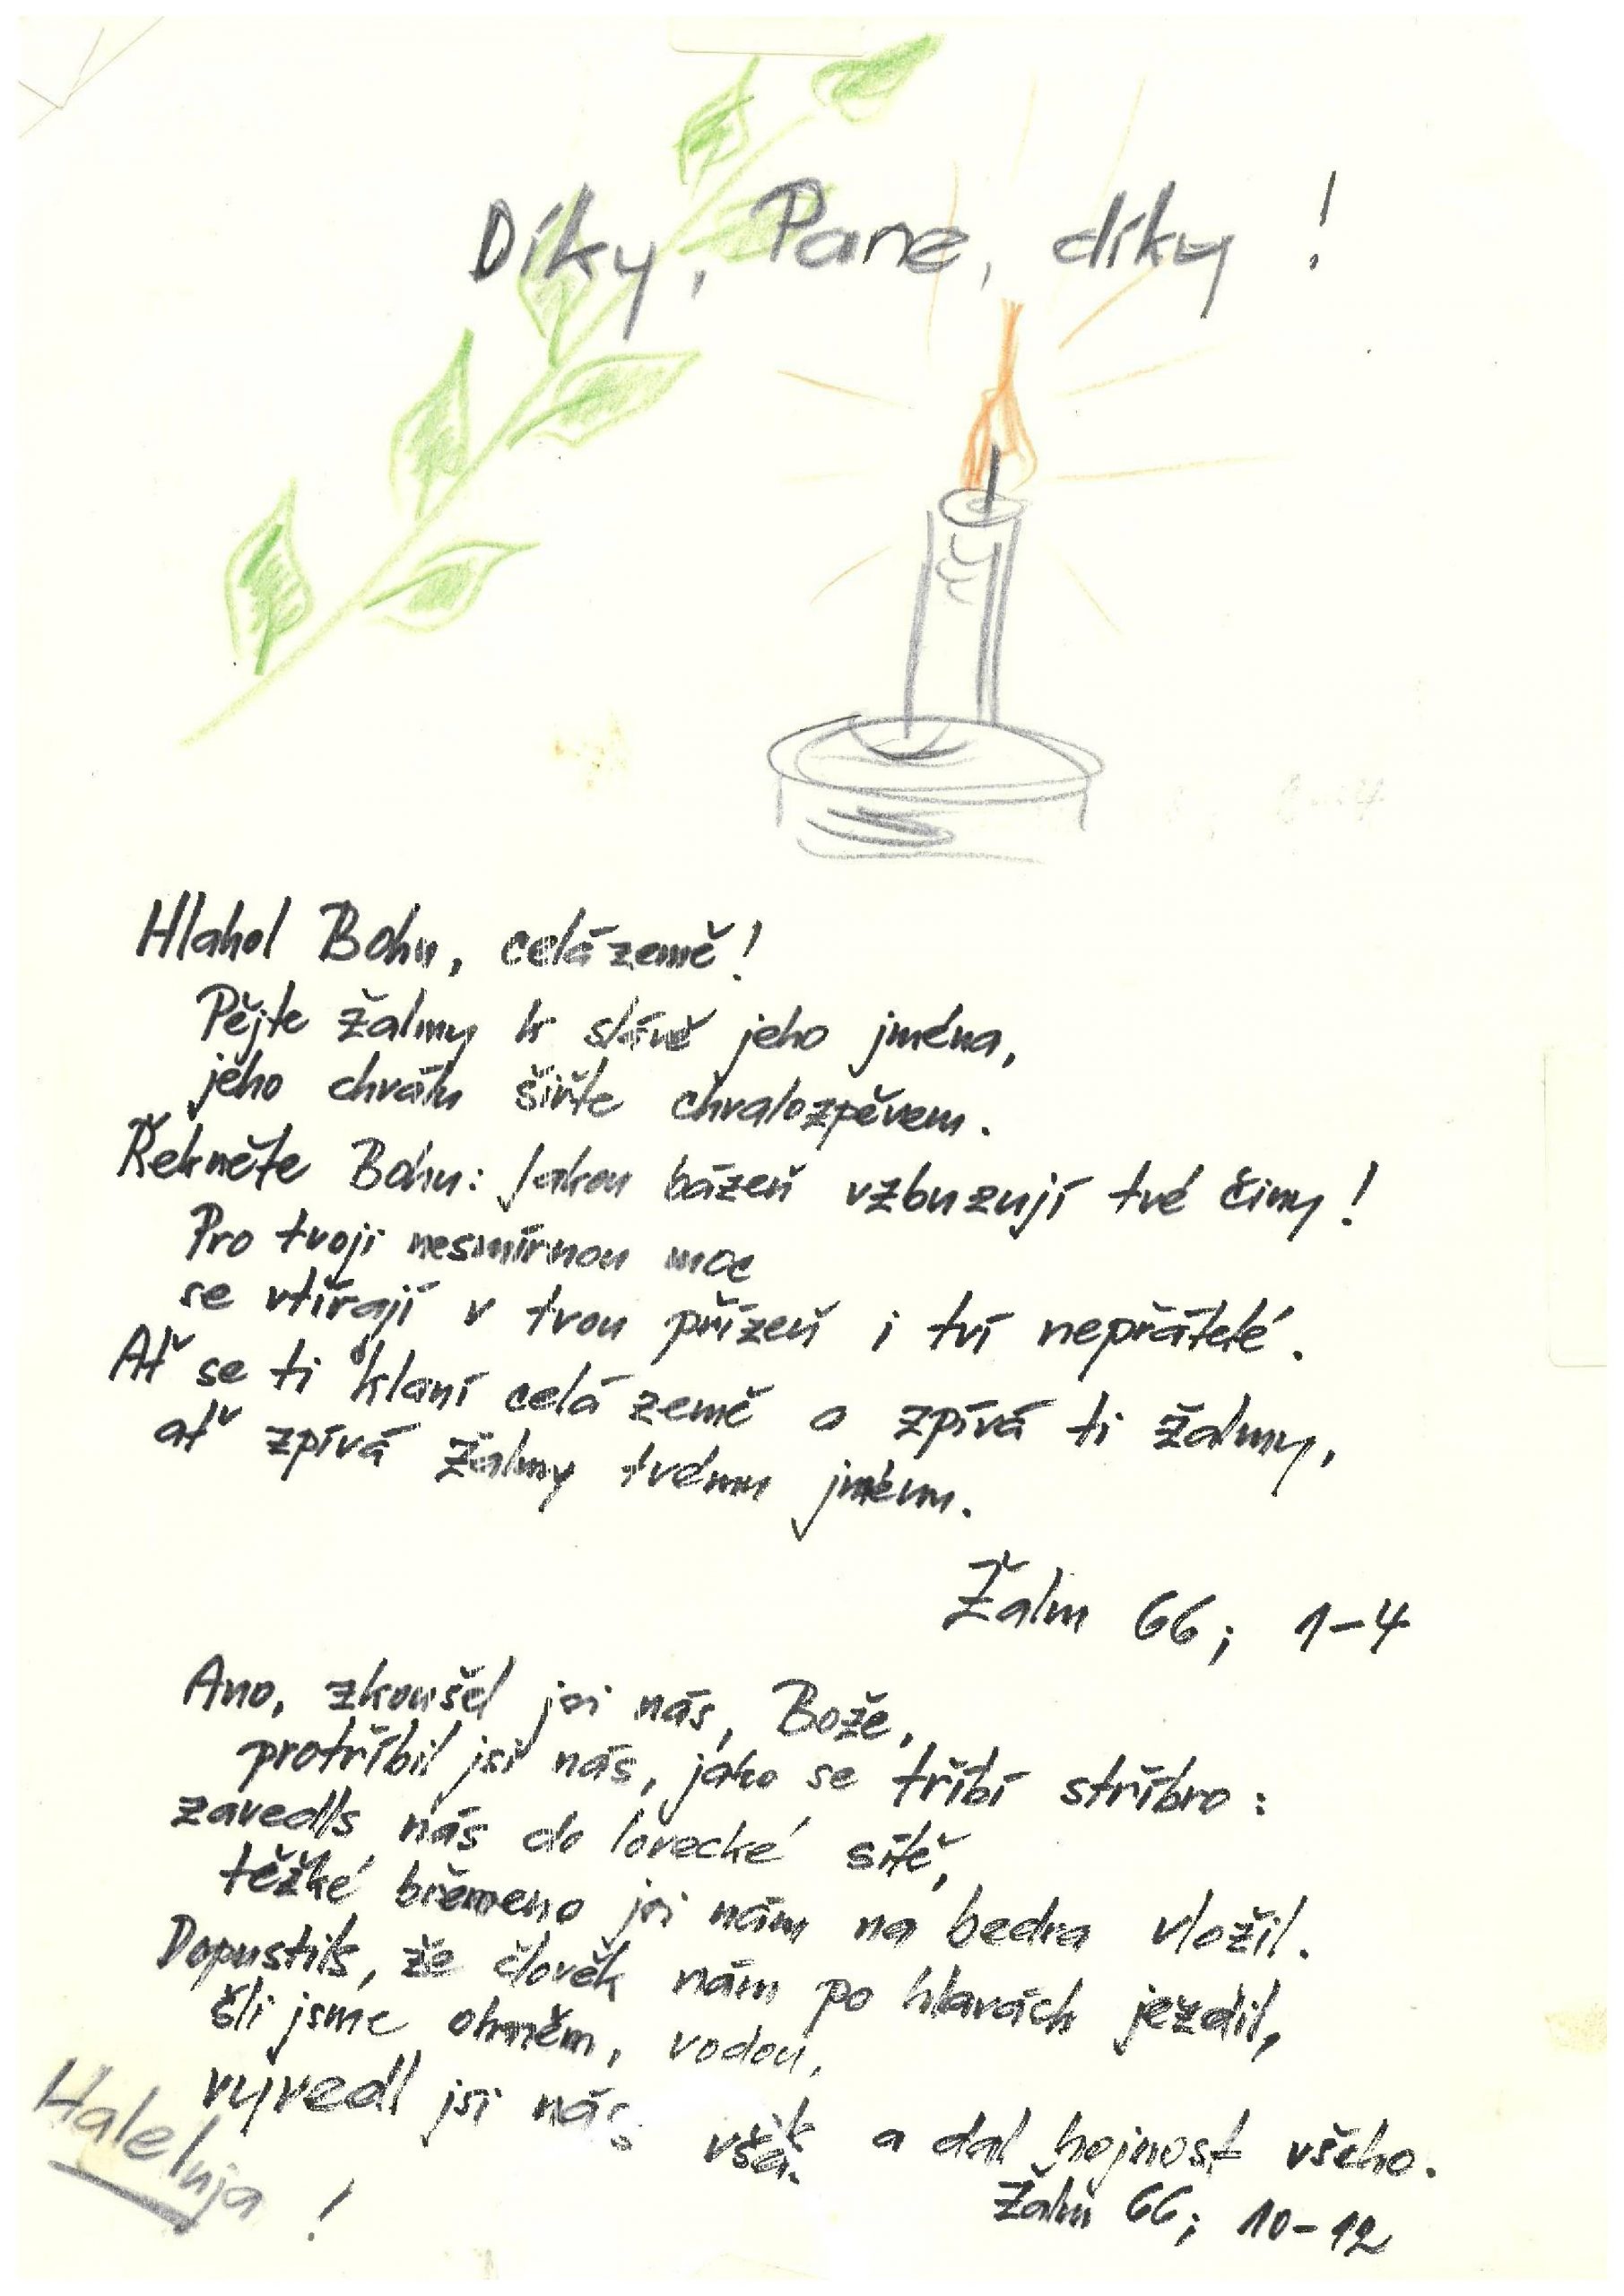 Díky, Pane, díky!
Hlahol Bohu, celá země!
Pějte žalmy k slávě jeho jména,
jeho chválu šiřte chvalozpěvem.
Řekněte Bohu: Jakou bázeň vzbuzují tvé činy!
Pro tvoji nesmírnou moc
se vtírají v tvou přízeň i tví nepřátelé.
Ať se ti klaní celá země a zpívá ti žalmy,
ať zpívá žalmy tvému jménu.
Žalm 66; 1-4
Ano, zkoušel jsi nás, Bože,
protříbil jsi nás, jako se tříbí stříbro:
zavedls nás do lovecké sítě,
těžké břemeno jsi nám na bedra vložil.
Dopustils, že člověk nám po hlavách jezdil,
šli jsme ohněm, vodou,
vyvedl jsi nás však a dal hojnost všeho.
Žalm 66; 10-12
Haleluja!